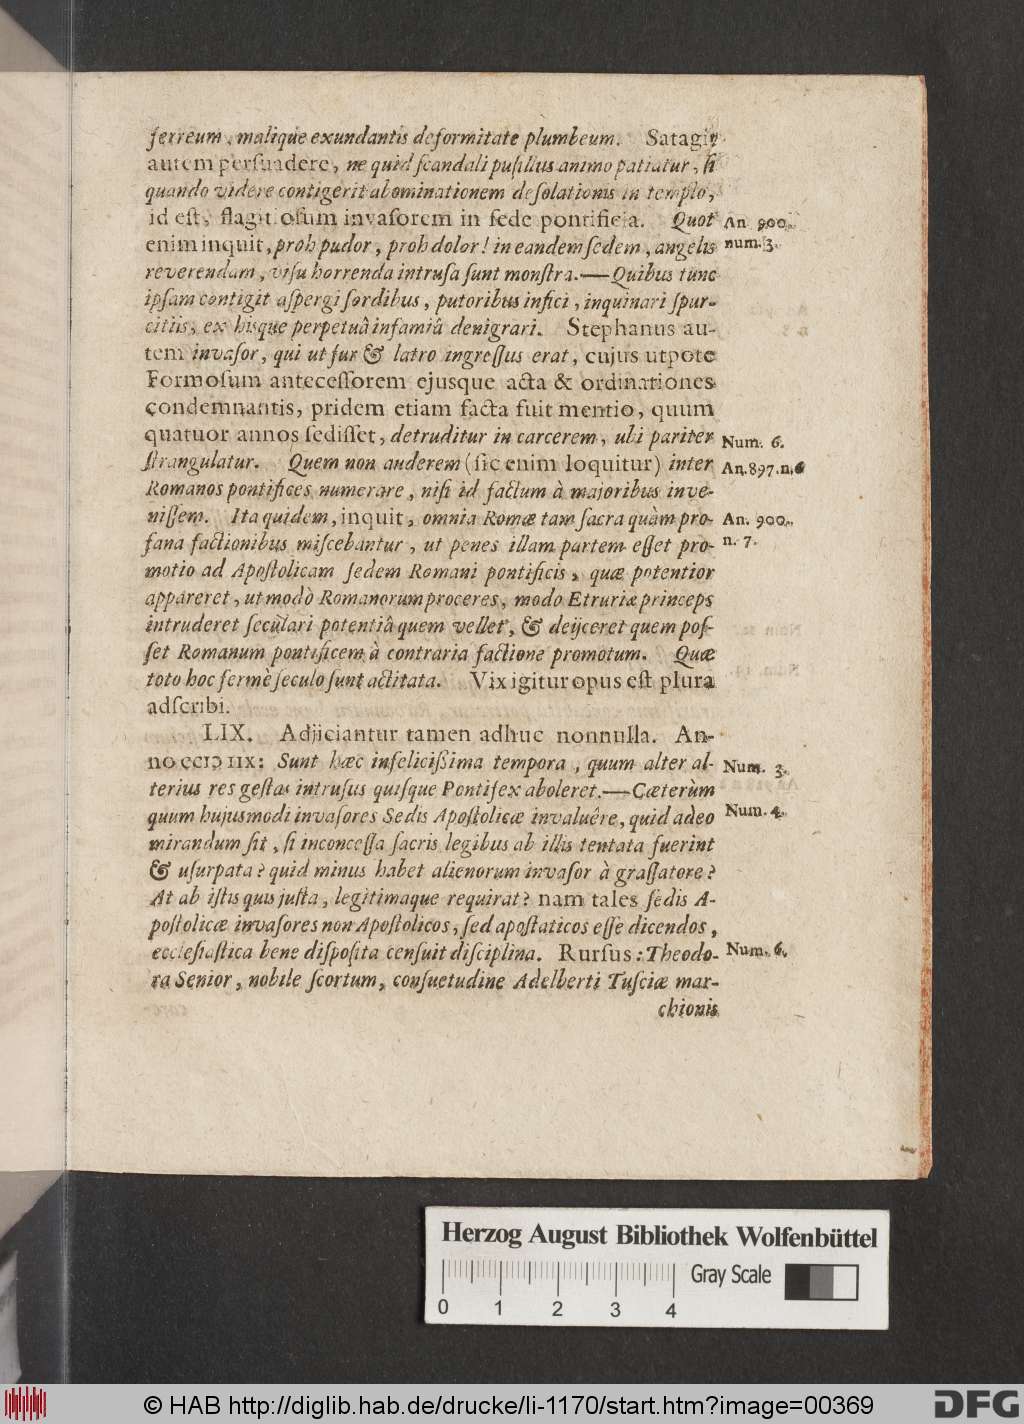 ferreum, malique exundantis deformitate plumbeum. Satagit
autem persuadere, ne quid scandali pusillus animo patiatur, si
quando videre contigerit abominationem desolationis in templo,
id est, flagitiosum invasorem in sede pontificia. Quot
An. 900.
enim inquit, proh pudor, proh dolor! in eandem sedem, angelis
num. 3.
reverendam, visu horrenda intrusa sunt monstra.— Quibus tunc
ipsam contigit aspergi sordibus, putoribus infici, inquinari spur-
citiis, ex hisque perpetuâ infamiâ denigrari. Stephanus au-
tem invasor, qui ut fur & latro ingressus erat, cujus utpote
Formosum antecessorem ejusque acta & ordinationes
condemnantis, pridem etiam facta fuit mentio, quum
quatuor annos sedisset, detruditur in carcerem, ubi pariter
Num. 6.
strangulatur. Quem non auderem (sic enim loquitur) inter
An. 897. n. 6
Romanos pontifices numerare, nisi id factum à majoribus inve-
nissem. Ita quidem, inquit, omnia Romæ tam sacra quàm pro-
An. 900.
fana factionibus miscebantur, ut penes illam partem esset pro-
n. 7.
motio ad Apostolicam sedem Romani pontificis, quæ potentior
appareret, ut modò Romanorum proceres, modo Etruriæ princeps
intruderet seculari potentiâ quem vellet, & deijceret quem pos-
set Romanum pontificem à contraria factione promotum. Quæ
toto hoc fermè seculo sunt actitata. Vix igitur opus est plura
adscribi.
LIX. Adjiciantur tamen adhuc nonnulla. An-
no ccIↄ IIX: Sunt hæc infelicissima tempora, quum alter al-
Num. 3.
terius res gestas intrusus quisque Pontifex aboleret.— Cæterùm
quum hujusmodi invasores Sedis Apostolicæ invaluêre, quid adeo
Num. 4.
mirandum sit, si inconcessa sacris legibus ab illis tentata fuerint
& usurpata? quid minus habet alienorum invasor à grassatore?
At ab istis quis justa, legitimaque requirat? nam tales sedis A-
postolicæ invasores non Apostolicos, sed apostaticos esse dicendos,
ecclesiastica bene disposita censuit disciplina. Rursus: Theodo-
Num. 6.
ra Senior, nobile scortum, consuetudine Adelberti Tusciæ mar-
chionis
Herzog August Bibliothek Wolfenbüttel
Gray Scale
0 1 2 3 4
© HAB http://diglib.hab.de/drucke/li-1170/start.htm?image=00369
DFG